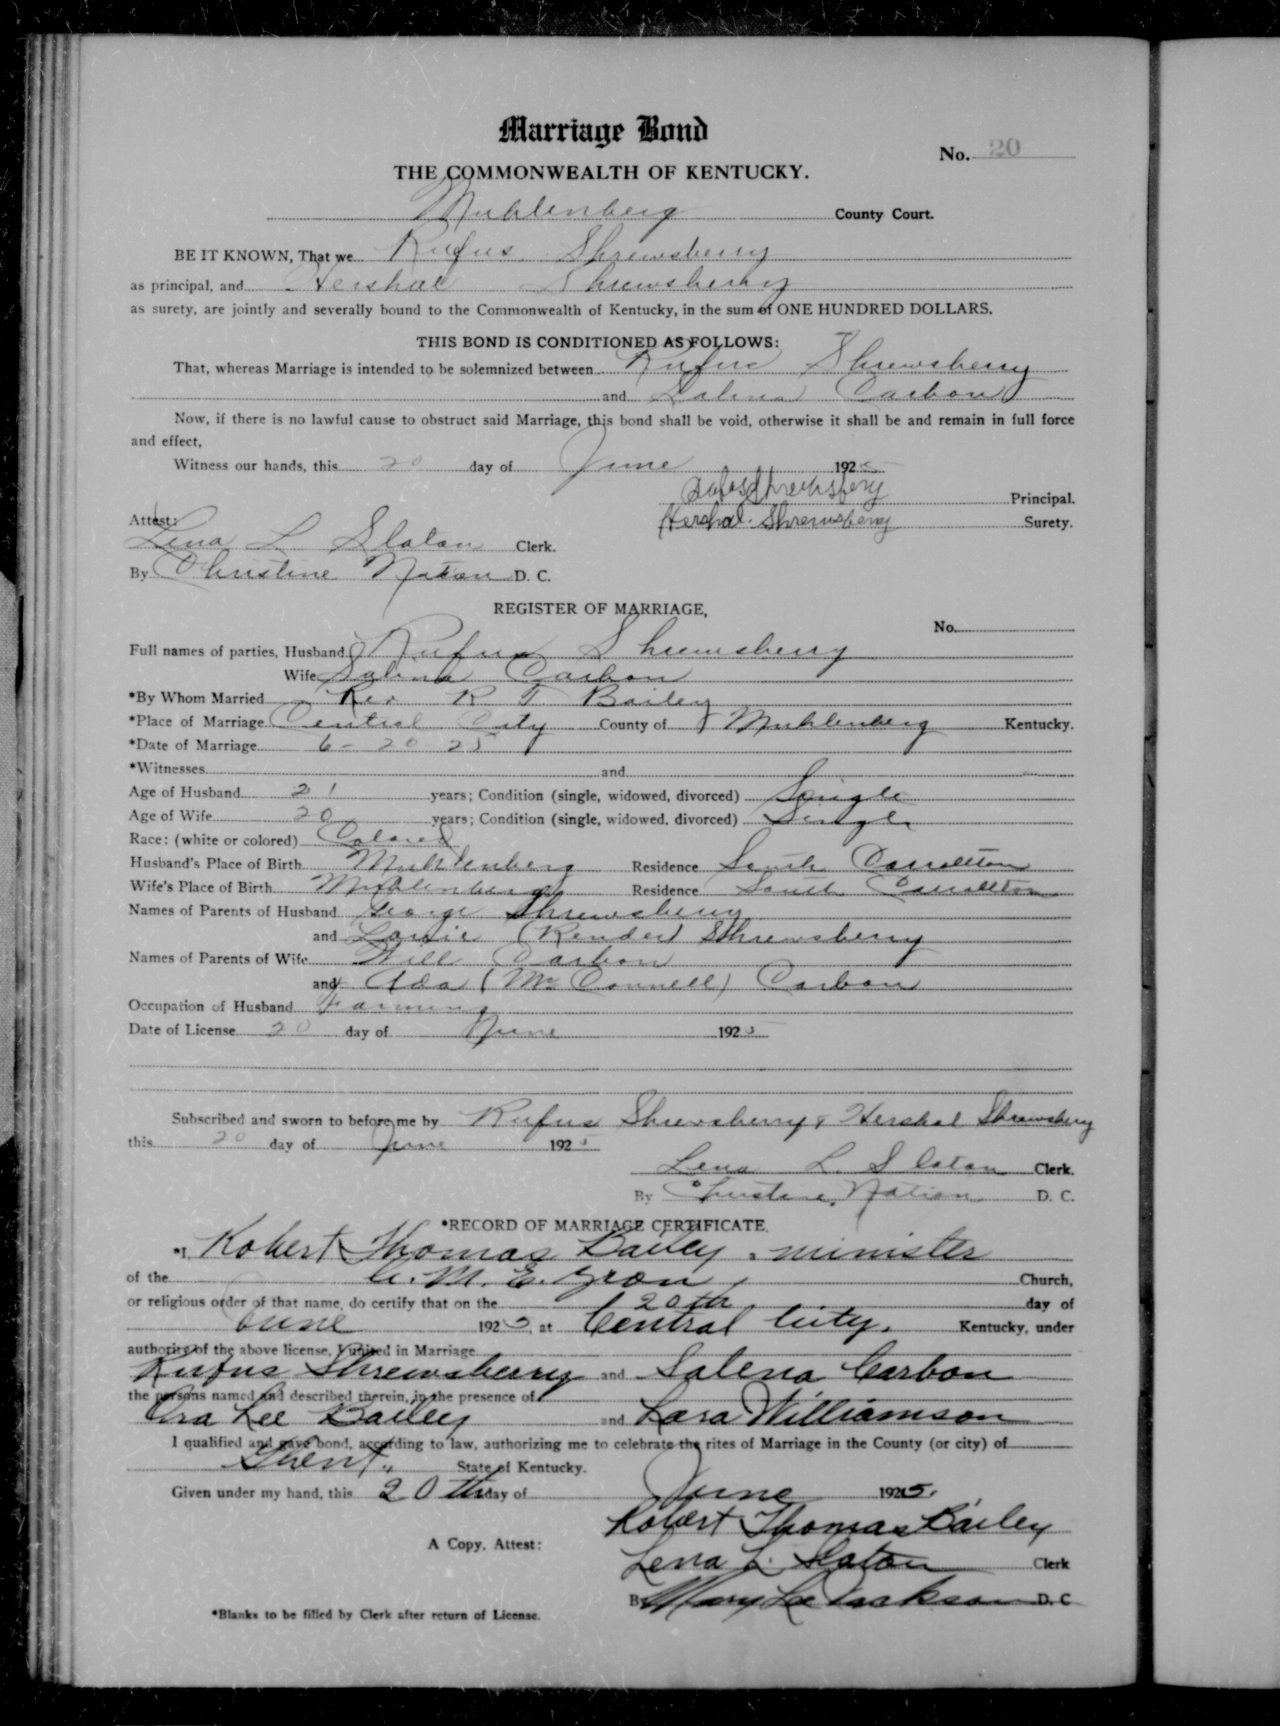 Marriage Bond
No. 20
THE COMMONWEALTH OF KENTUCKY.
Muhlenberg County Court.
BE IT KNOWN, That we Rufus Shrewsberry
as principal, and Hershal Shrewsberry
as surety, are jointly and severally bound to the Commonwealth of Kentucky, in the sum of ONE HUNDRED DOLLARS.
THIS BOND IS CONDITIONED AS FOLLOWS:
That, whereas Marriage is intended to be solemnized between Rufus Shrewsberry
and Salena Carbon
Now, if there is no lawful cause to obstruct said Marriage, this bond shall be void, otherwise it shall be and remain in full force
and effect,
Witness our hands, this 20 day of June 1925
Rufus Shrewsbery Principal.
Attest: Hershal Shrewsberry Surety.
Lena L. Slaton Clerk.
By Christine Nation D. C.
REGISTER OF MARRIAGE,
No.
Full names of parties, Husband Rufus Shrewsberry
Wife Salena Carbon
*By Whom Married Rev R T Bailey
*Place of Marriage Central City County of Muhlenberg Kentucky.
*Date of Marriage 6-20 25
*Witnesses and
Age of Husband 21 years; Condition (single, widowed, divorced) Single
Age of Wife 20 years; Condition (single, widowed, divorced) Single
Race: (white or colored) Colored
Husband's Place of Birth Muhlenberg Residence South Carrollton
Wife's Place of Birth Muhlenberg Residence South Carrollton
Names of Parents of Husband George Shrewsberry
and (Render) Shrewsberry
Names of Parents of Wife Will Carbon
and Ada (McConnell) Carbon
Occupation of Husband Farming
Date of License 20 day of June 1925
Subscribed and sworn to before me by Rufus Shrewsberry & Hershal Shrewsberry
this 20 day of June 1925
Lena L. Slaton Clerk.
By Christine Nation D. C.
*RECORD OF MARRIAGE CERTIFICATE.
*I, Robert Thomas Bailey, minister
of the A. M. E. Zion, Church,
or religious order of that name, do certify that on the 20th day of
June 1925, at Central City, Kentucky, under
authority of the above license, I united in Marriage
Rufus Shrewsberry and Salena Carbon
the persons named and described therein, in the presence of
Ora Lee Bailey and Lara Williamson
I qualified and gave bond, according to law, authorizing me to celebrate the rites of Marriage in the County (or city) of
State of Kentucky.
Given under my hand, this 20th day of June 1925.
Robert Thomas Bailey
A Copy, Attest: Lena L. Slaton Clerk
By Mary Lee Jackson D. C
*Blanks to be filled by Clerk after return of License.